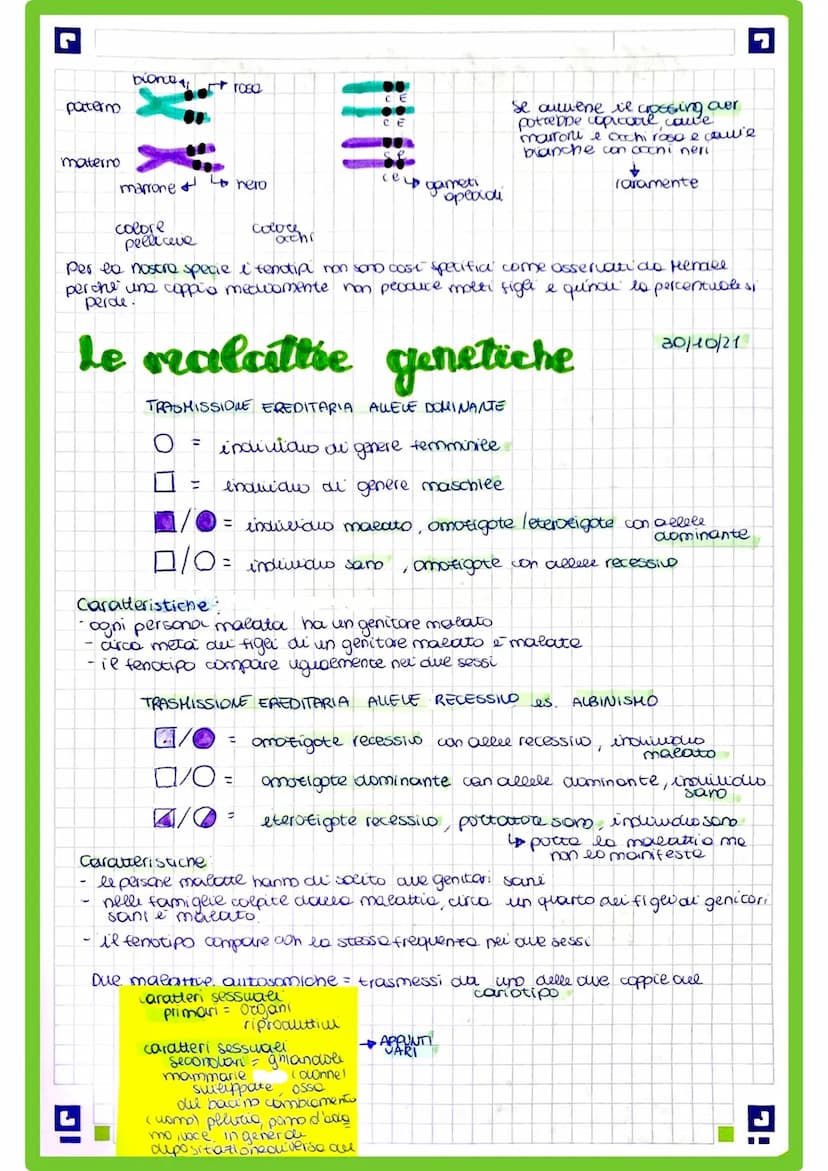 bianca rosa
paterno
materno
marrone nero
C E
C E
c e
c e
gameti
aploidi
colore
pelliccia
colore
occhi
Se avviene il crossing over
potrebbe capitare cavie
marroni e occhi rosa e cavie
bianche con occhi neri
raramente
Per la nostra specie i fenotipi non sono così specifici come osservati da Mendel
perché una coppia mediamente non produce molti figli e quindi la percentuale si
perde.
Le malattie genetiche
30/10/21
TRASMISSIONE EREDITARIA ALLELE DOMINANTE
= individuo di genere femminile
= individuo di genere maschile
/ = individuo malato, omozigote/eterozigote con allele
dominante
/ = individuo sano, omozigote con allele recessivo
Caratteristiche:
- ogni persona malata ha un genitore malato
- circa metà dei figli di un genitore malato è malate
- il fenotipo compare ugualmente nei due sessi
TRASMISSIONE EREDITARIA ALLELE RECESSIVO es. ALBINISMO
/ = omozigote recessivo con allele recessivo, individuo
malato
/ = omozigote dominante con allele dominante, individuo
sano
/ = eterozigote recessivo, portatore sano, individuo sano
porta la malattia ma
non la manifesta
Caratteristiche:
- le persone malate hanno di solito due genitori sani
- nelle famiglie colpite dalla malattia, circa un quarto dei figli di genitori
sani è malato.
- il fenotipo compare con la stessa frequenza nei due sessi
Due malattie autosomiche = trasmessi da uno delle due coppie del
cariotipo
caratteri sessuali
primari = organi
riproduttivi
caratteri sessuali
secondari = ghiandole
mammarie (donne)
sviluppate, ossa
del bacino cambiamento
(uomo) peluria, pomo d'ada
mo, voce. In genere di
diverso del
APPUNTI
VARI